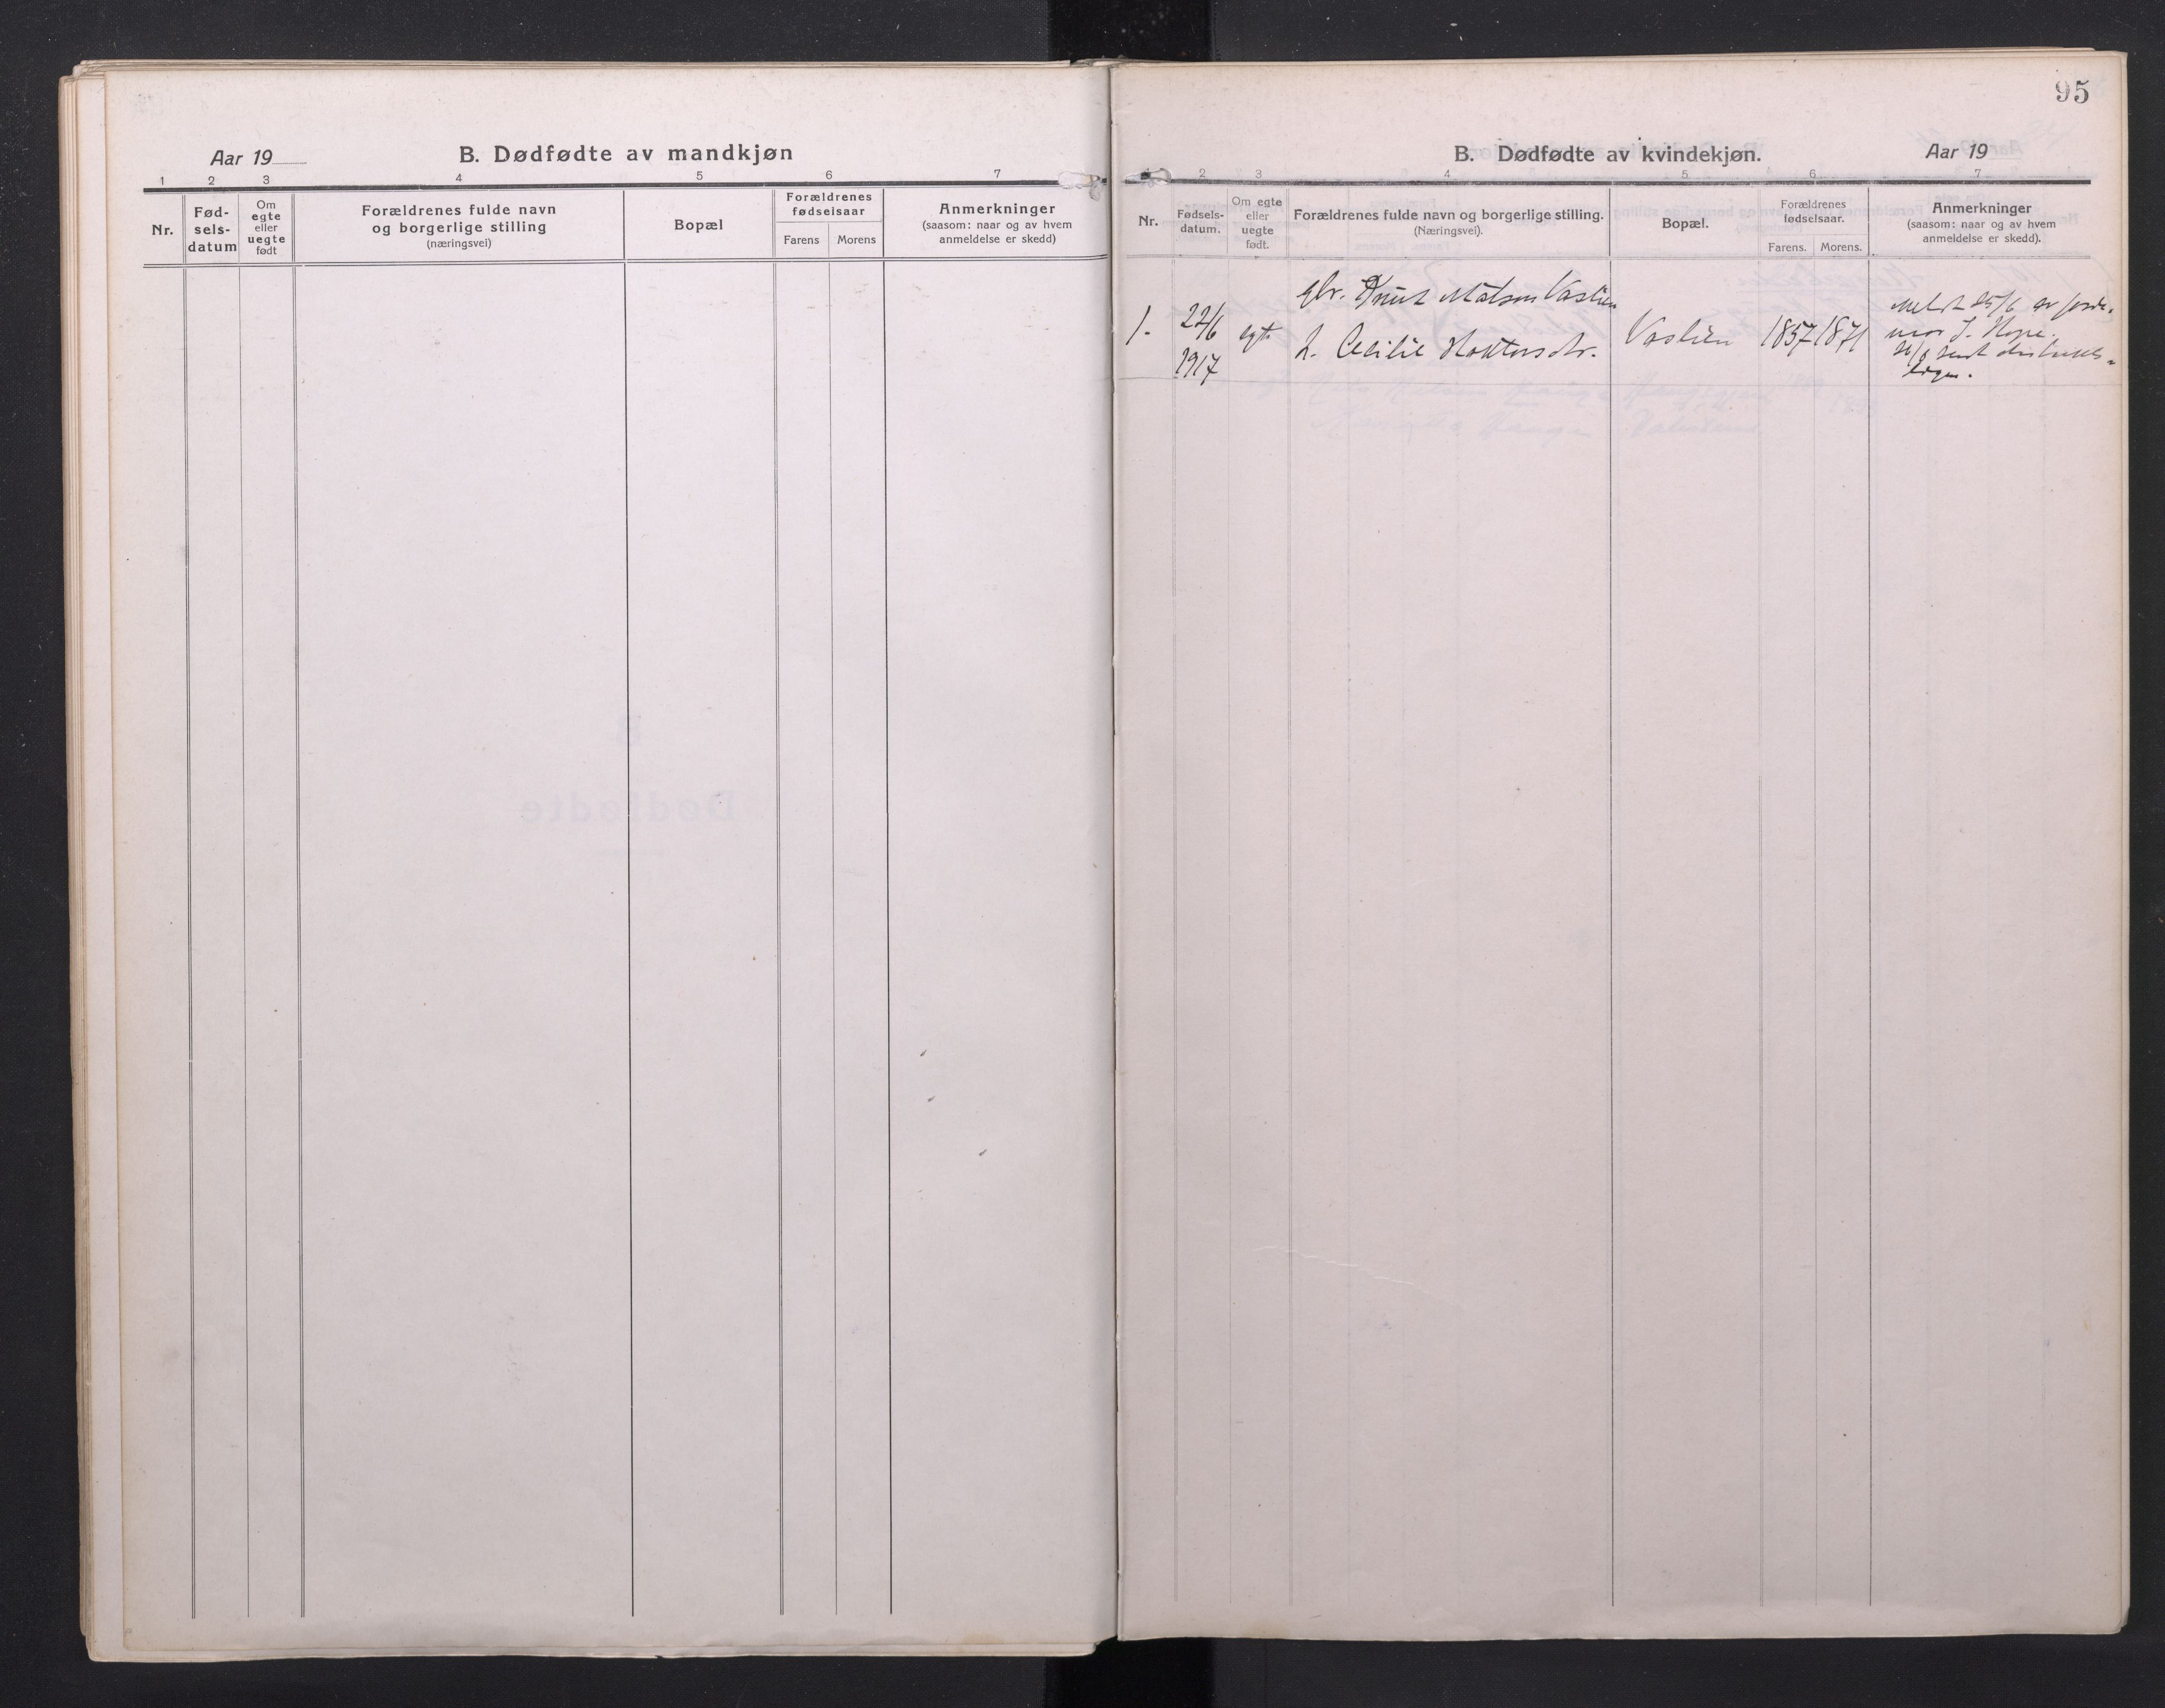 Aar 19
B. Dødfødte av mandkjøn
1 2 3 4 5 6 7
Nr.
Fød-
sels-
datum
Om
egte
eller
uegte
født
Forældrenes fulde navn
og borgerlige stilling
(næringsvei)
Bopæl
Forældrenes
fødselsaar
Farens Morens
Anmerkninger
(saasom: naar og av hvem
anmeldelse er skedd)
95
B. Dødfødte av kvindekjøn.
Aar 19
2 3 4 5 6 7
Nr.
Fødsels-
datum.
Om egte
eller
uegte
født.
Forældrenes fulde navn og borgerlige stilling.
(Næringsvei).
Bopæl.
Forældrenes
fødselsaar.
Farens. Morens.
Anmerkninger
(saasom: naar og av hvem
anmeldelse er skedd).
1.
22/6
1917
egte
gbr. Knut Matson Vaslien
h. Cecilie
Vaslien
1857
1871
meldt 25/6 av jorde-
mor J. Hope.
sendt distrikts-
lægen.